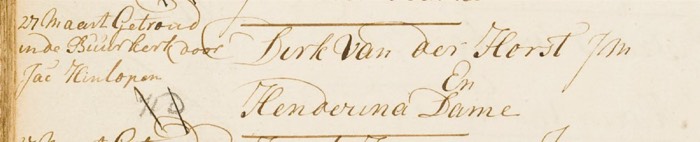 27 Maart Getroud
in de Buurkerk door
Jac Hinlopen
Dirk van der Horst Jm
En
Henderina Dame